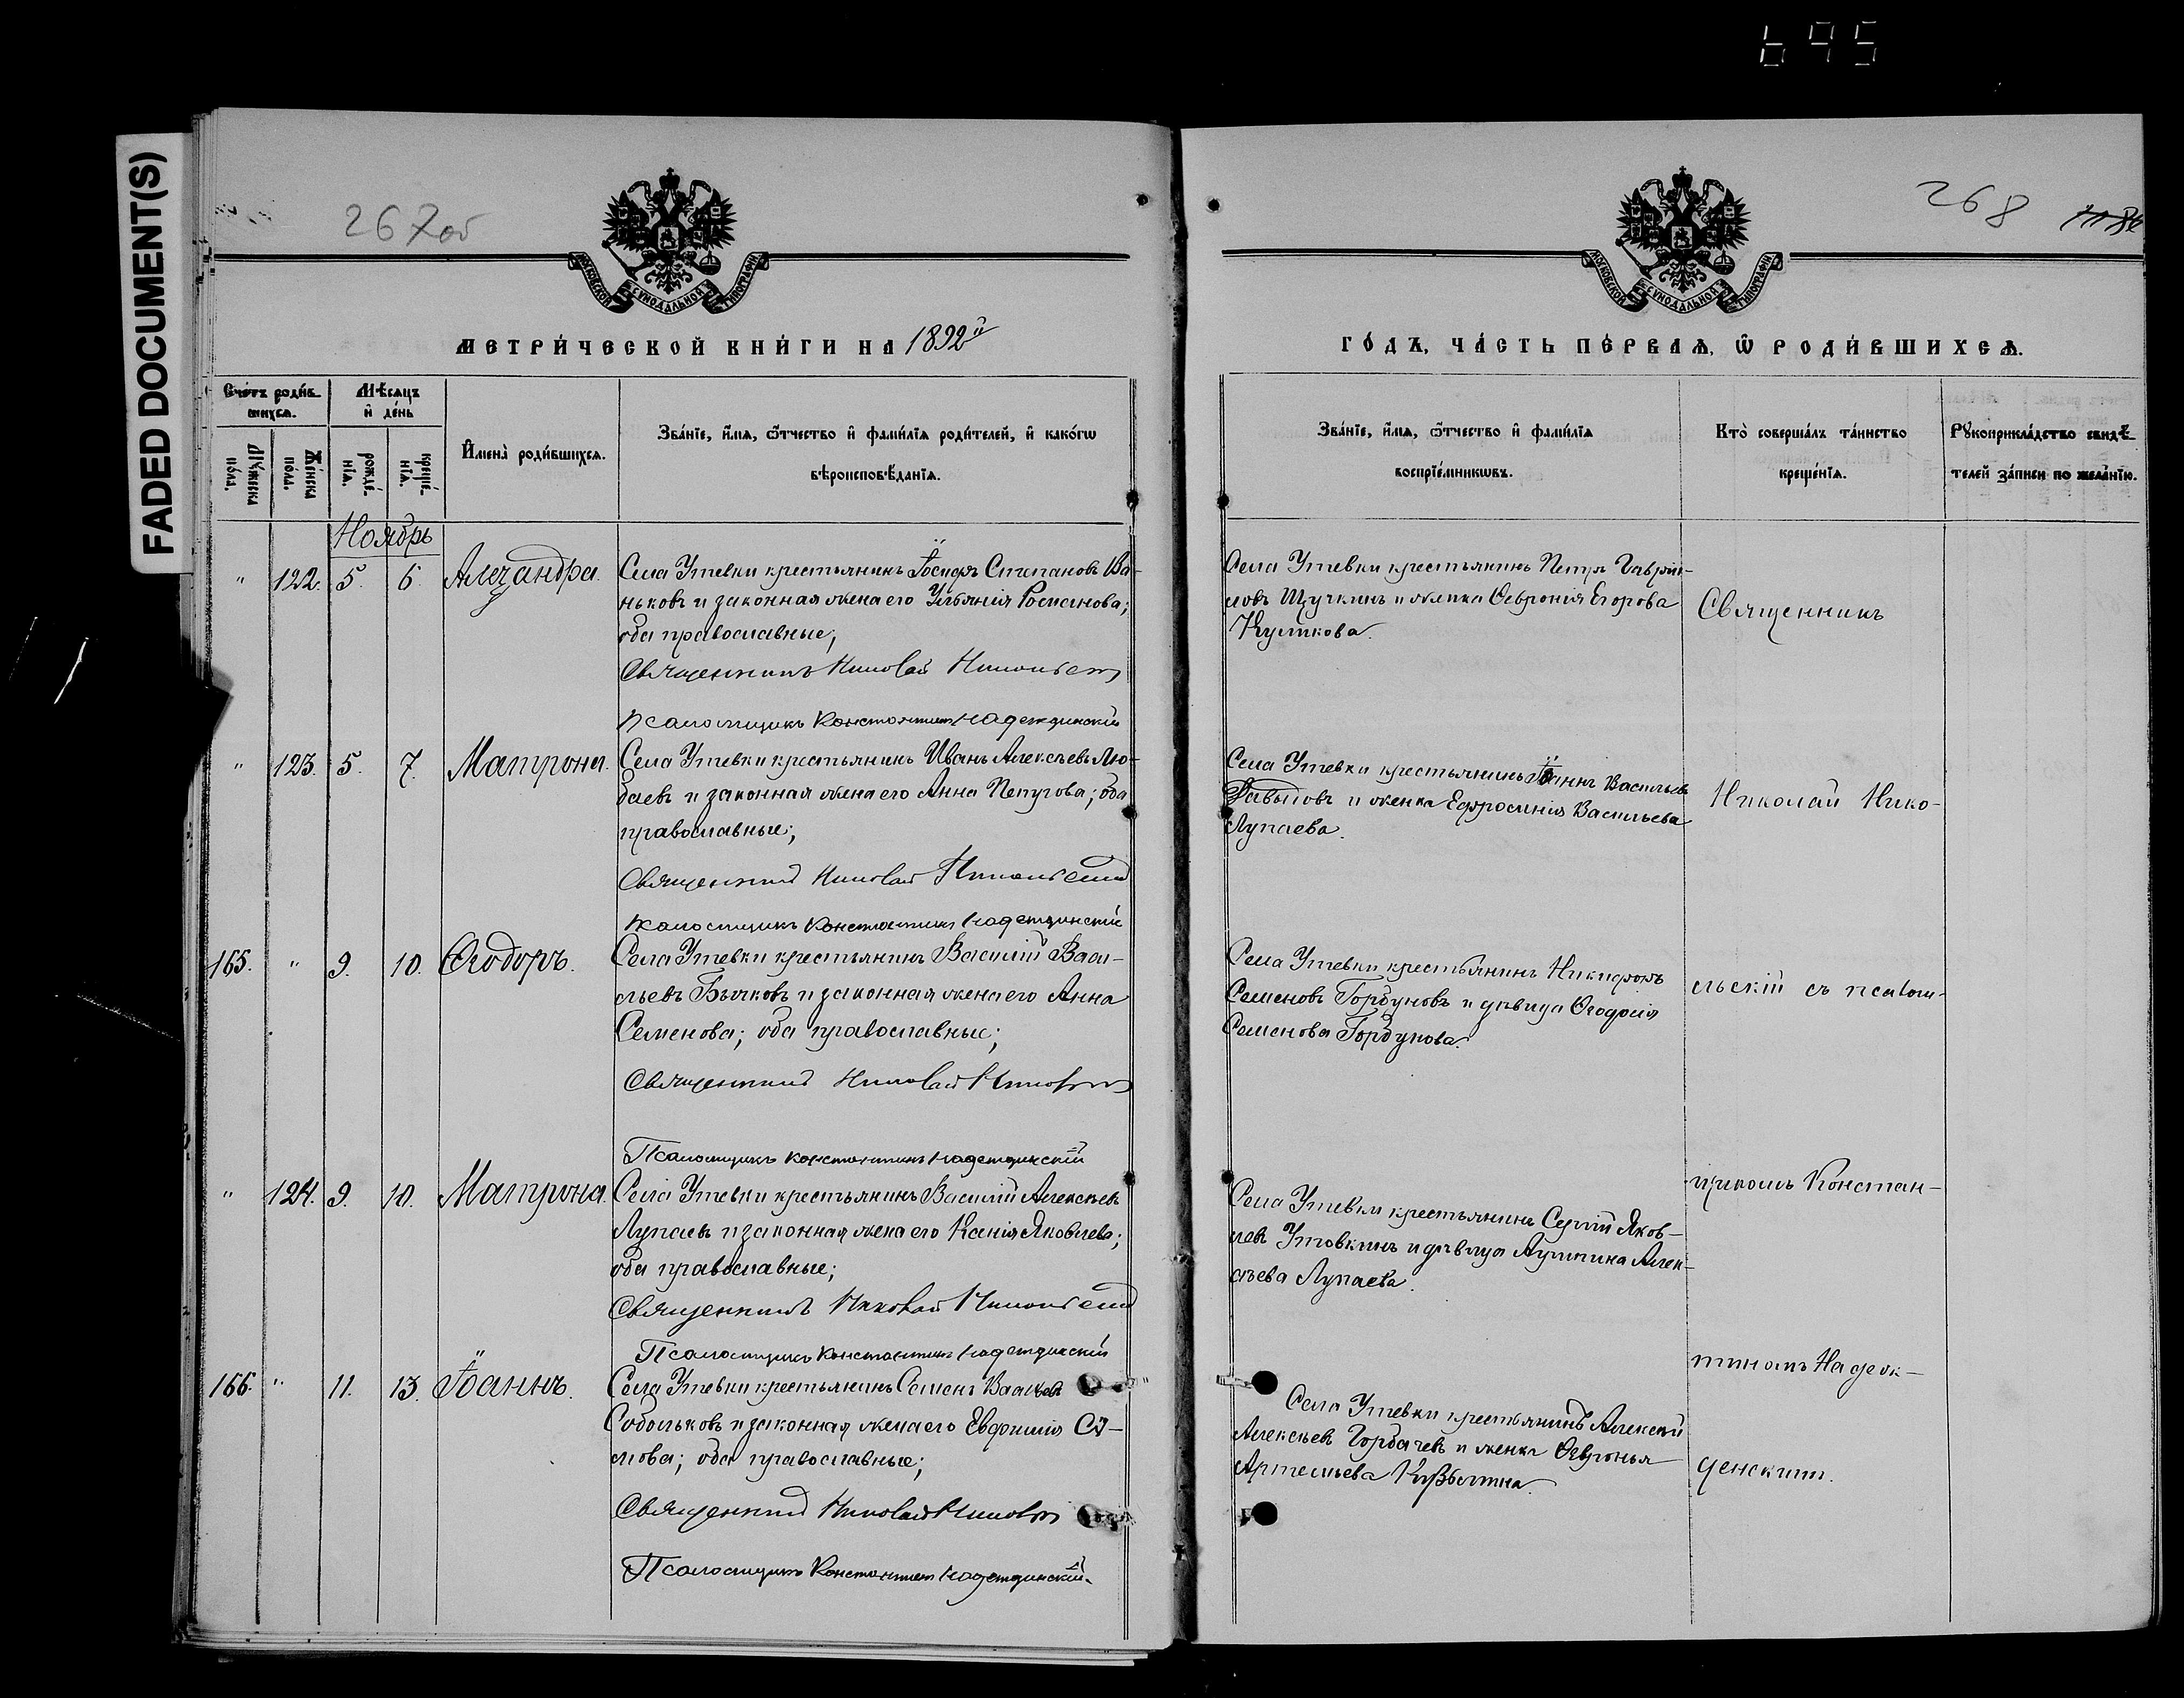 695
FADED DOCUMENT(S)
267об
268
МОСКОВСКОЙ СѴНОДАЛЬНОЙ ТИПОГРАФІИ
МОСКОВСКОЙ СѴНОДАЛЬНОЙ ТИПОГРАФІИ
МЕТРИ́ЧЕСКОЙ КНИ́ГИ НА 1892й
ГО́ДЪ, ЧА́СТЬ ПЕ́РВАѦ, Ѿ РОДИ́ВШИХСѦ.
Счетъ роди́вшихсѧ.
Мѣсѧцъ и҆ де́нь
Мꙋжеска по́ла.
Же́нска по́ла.
рожде́нїѧ.
креще́нїѧ.
И҆мена̀ роди́вшихсѧ.
Зва́нїе, и҆́мѧ, ѻ҆́тчество и҆ фами́лїѧ роди́телей, и҆ како́гѡ
вѣроисповѣ́данїѧ.
Зва́нїе, и҆́мѧ, ѻ҆́тчество и҆ фами́лїѧ
воспрїе́мникѡвъ.
Кто̀ соверша́лъ та́инство
креще́нїѧ.
Рꙋкоприкла́дство свидѣ́-
телей за́писи по жела́нїю.
Ноябрь
" 122. 5. 6. Александра. Села Утевки крестьянинъ Іосифъ Степановъ Ва-
ньковъ и законная жена его Ульянія Романова;
оба православные;
Священникъ Николай Никольскій
Псаломщикъ Константинъ Надеждинскій
Села Утевки крестьянинъ Петръ Гаврии-
ловъ Щучкинъ и женка Ѳевронія Егорова
Куликова.
Священникъ
" 123. 5. 7. Матрона. Села Утевки крестьянинъ Иванъ Алексѣевъ Лю-
баевъ и законная жена его Анна Петрова; оба
православные;
Священникъ Николай Никольскій
Псаломщикъ Константинъ Надеждинскій
Села Утевки крестьянинъ Іоаннъ Васильевъ
Давыдовъ и женка Ефросинія Васильева
Лупаева.
Николай Нико-
165. " 9. 10. Ѳеодоръ. Села Утевки крестьянинъ Василій Васи-
льевъ Бычковъ и законная жена его Анна
Семенова; оба православные;
Священникъ Николай Никольскій
Псаломщикъ Константинъ Надеждинскій
Села Утевки крестьянинъ Никифоръ
Семеновъ Горбуновъ и дѣвица Ѳеодосія
Семенова Горбунова.
льскій съ псалом-
" 124. 9. 10. Матрона. Села Утевки крестьянинъ Василій Алексѣевъ
Лупаевъ и законная жена его Ксенія Яковлева;
оба православные;
Священникъ Николай Никольскій
Псаломщикъ Константинъ Надеждинскій
Села Утевки крестьянинъ Сергій Яков-
левъ Утовкинъ и дѣвица Акилина Алек-
сѣева Лупаева.
щикомъ Констан-
166. " 11. 13. Іоаннъ. Села Утевки крестьянинъ Семенъ Васильевъ
Собольковъ и законная жена его Евфимія
оба православные;
Священникъ Николай Никольскій
Псаломщикъ Константинъ Надеждинскій.
Села Утевки крестьянинъ Алексѣй
Алексѣевъ Горбачевъ и женка Ѳевронья
Артемьева
тиномъ Надеж-
денскимъ.